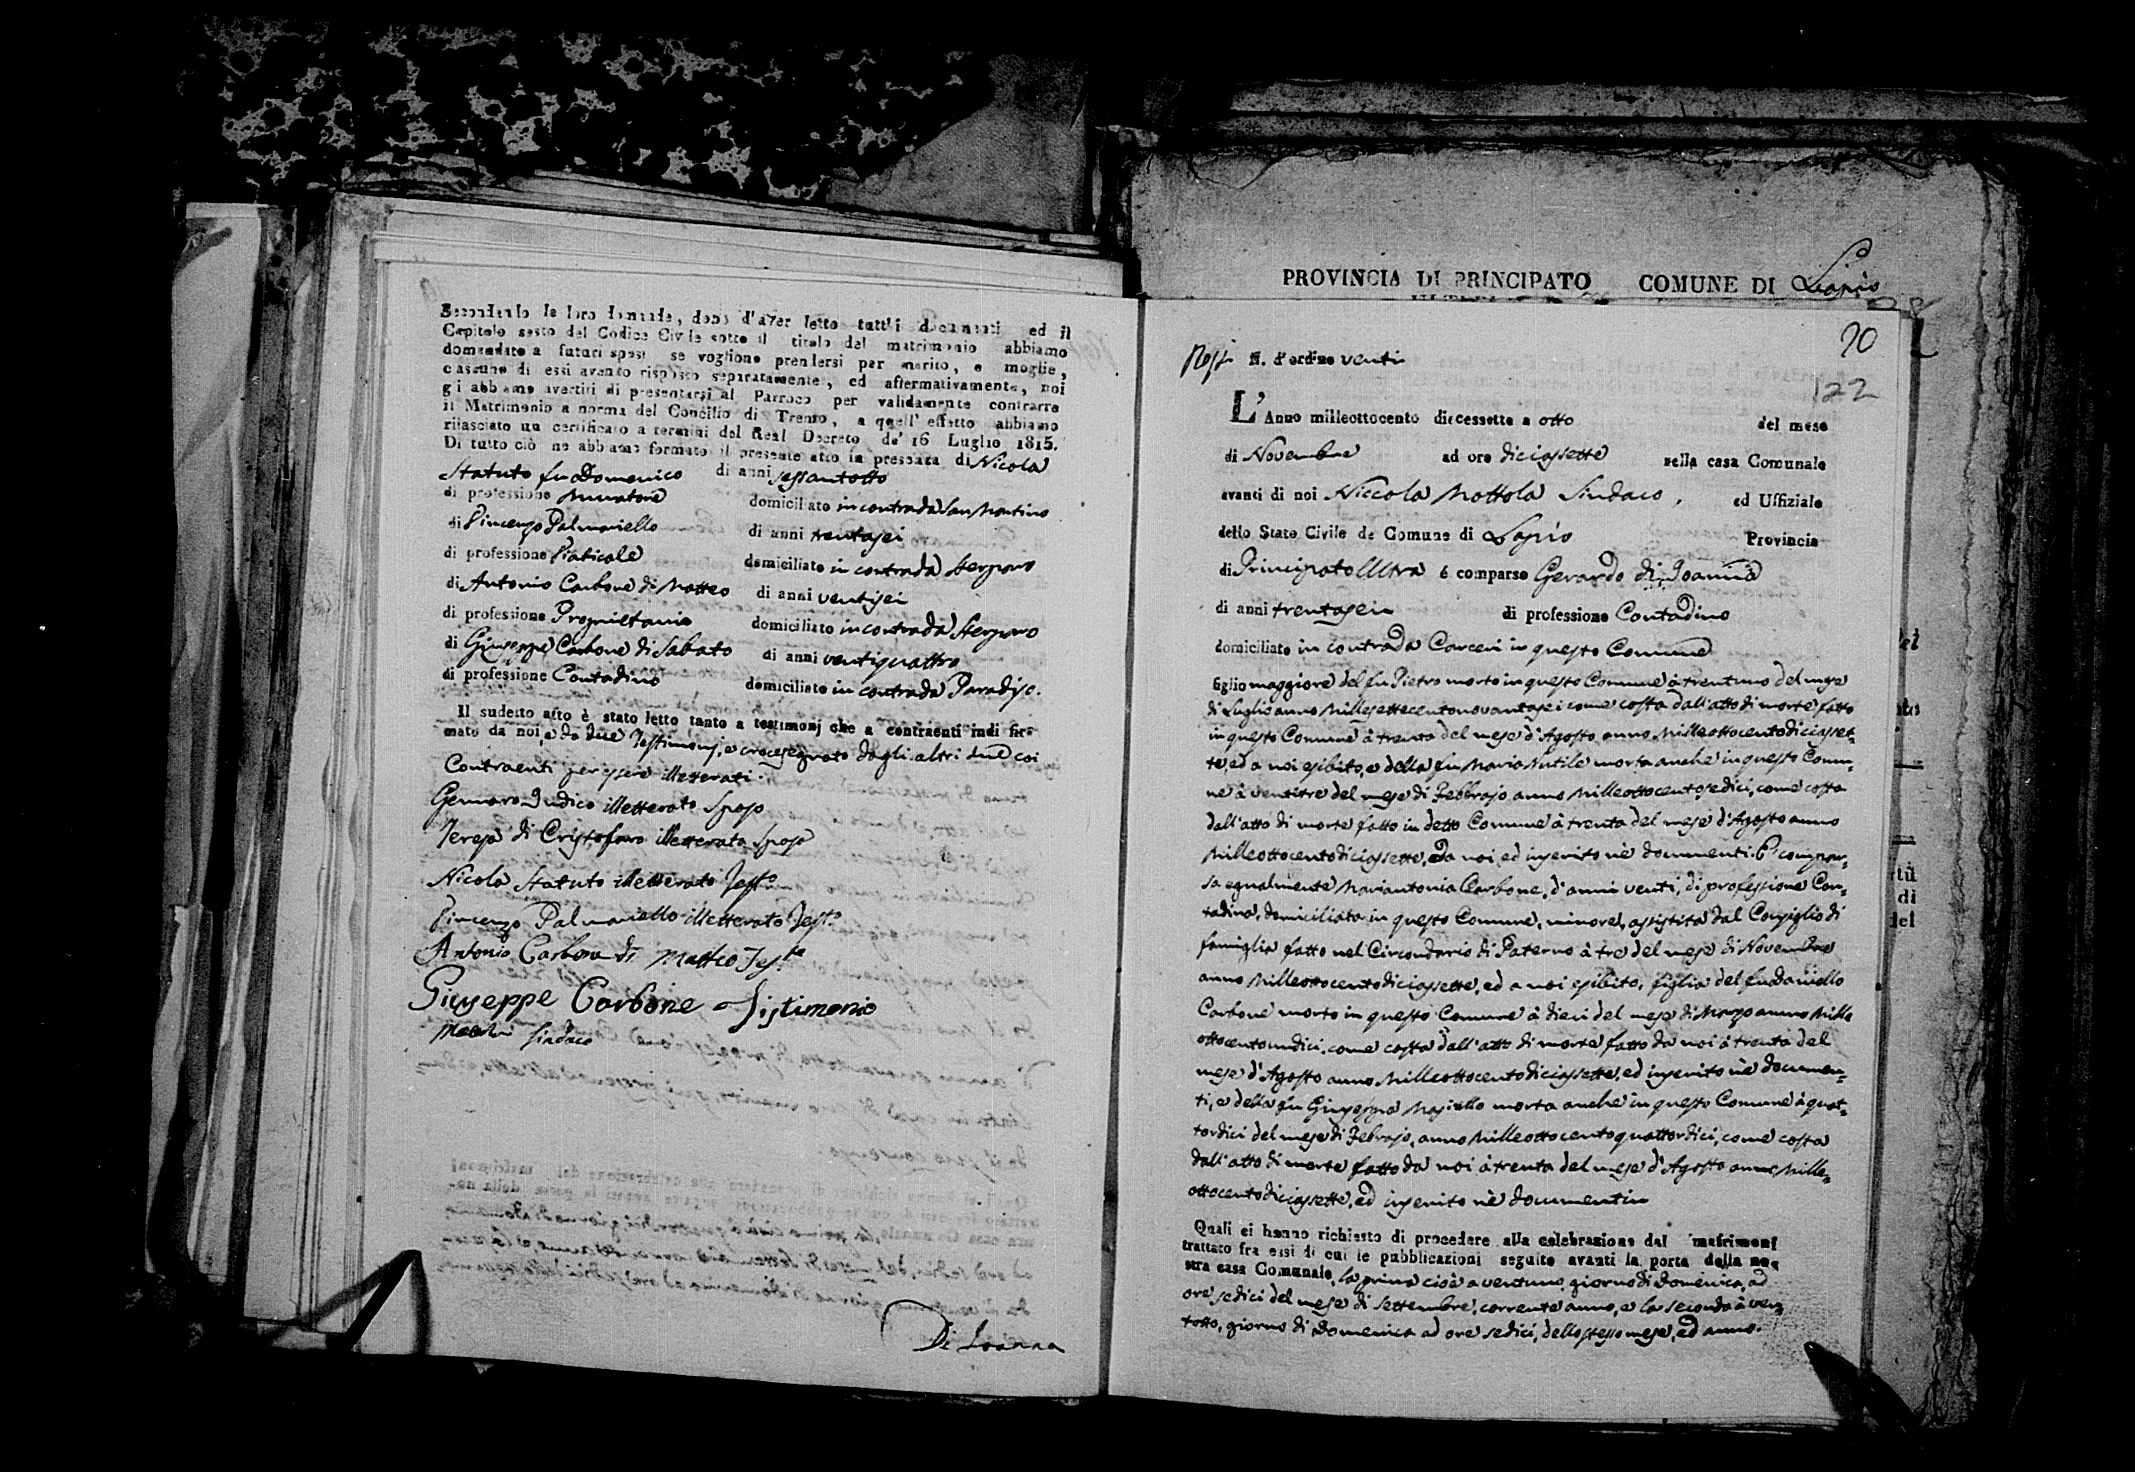 Secondando la loro domanda, dopo d'aver letto tutti i documenti ed il
Capitolo sesto del Codice Civile sotto il titolo del matrimonio abbiamo
domandato a futuri sposi se vogliono prendersi per marito, e moglie,
ciascuno di essi avendo risposto separatamente, ed affermativamente, noi
gi abbiamo avertiti di presentarsi al Parroco per validamente contrarre
il Matrimonio a norma del Concilio di Trento, a quell' effetto abbiamo
rilasciato un certificato a termini del Real Decreto de' 16 Luglio 1815.
Di tutto ciò ne abbiamo formato il presente atto in presenza di Nicola
Statuto fu Domenico di anni sessantotto
di professione Muratore domiciliato in contrada San Martino
di Vincenzo Palmariello di anni trentasei
di professione Viaticale domiciliato in contrada Sterparo
di Antonio Carbone di Matteo di anni ventisei
di professione Proprietario domiciliato in contrada Sterparo
di Giuseppe Carbone di Sabato di anni ventiquattro
di professione Contadino domiciliato in contrada Paradiso.
Il sudetto atto è stato letto tanto a testimonj che a contraenti indi fir-
mato da noi, e da due Testimonj, e crocesegnato dagli altri due coi
Contraenti per essere illetterati.
Gennaro Judico illetterato Sposo
Teresa di Cristofaro illetterata Sposa
Nicola Statuto illetterato Testo
Vincenzo Palmariello illetterato Testo
Antonio Carbone di Matteo Testo
Giuseppe Carbone Tistimonio
Sindaco
Di Ioanna
PROVINCIA DI PRINCIPATO COMUNE DI Lapio
20
N. d'ordine venti
122
L'Anno milleottocento diecessette a otto del mese
di Novembre ad ore diciassette nella casa Comunale
avanti di noi Niccola Mottola Sindaco, ed Uffiziale
dello Stato Civile de Comune di Lapio Provincia
di Principato Ultra è comparso Gerardo di Joanna
di anni trentasei di professione Contadino
domiciliato in contrada Carceri in questo Comune
figlio maggiore del fu Pietro morto in questo Comune à trentuno del mese
di Luglio anno Millesettecentonovantasei come costa dall'atto di morte fatto
in questo Comune à trenta del mese d'Agosto anno Milleottocentodiciasset-
te, ed a noi esibito, e della fu Maria Nutile morta anche in questo Comu-
ne à ventitre del mese di Febbrajo anno Milleottocentosedici, come costa
dall'atto di morte fatto in detto Comune à trenta del mese d'Agosto anno
Milleottocentodiciassette, da noi, ed inserito nè documenti. E' compar-
sa egualmente Mariantonia Carbone, d'anni venti, di professione Con-
tadina, domiciliata in questo Comune, minore, assistita dal Consiglio di
famiglia fatto nel Circondario di Paterno à tre del mese di Novembre
anno Milleottocentodiciassette, ed a noi esibito, figlia del fu Daniello
Carbone morto in questo Comune à dieci del mese di Marzo anno Mille
ottocentoundici, come costa dall'atto di morte fatto da noi à trenta del
mese d'Agosto anno Milleottocentodiciassette, ed inserito nè documen-
ti, e della fu Giuseppa Masiello morta anche in questo Comune à quat-
tordici del mese di Febrajo, anno Milleottocentoquattordici, come costa
dall'atto di morte fatto da noi à trenta del mese d'Agosto anno Mille-
ottocentodiciassette, ed inserito nè documenti
Quali ci hanno richiesto di procedere alla celebrazione del matrimoni
trattato fra essi di cui le pubblicazioni seguite avanti la porta della no-
stra casa Comunale, la prima cioè a ventuno, giorno di Domenica, ad
ore sedici del mese di Settembre, corrente anno, e la seconda à ven-
totto, giorno di Domenica ad ore sedici, dello stesso mese, ed anno.